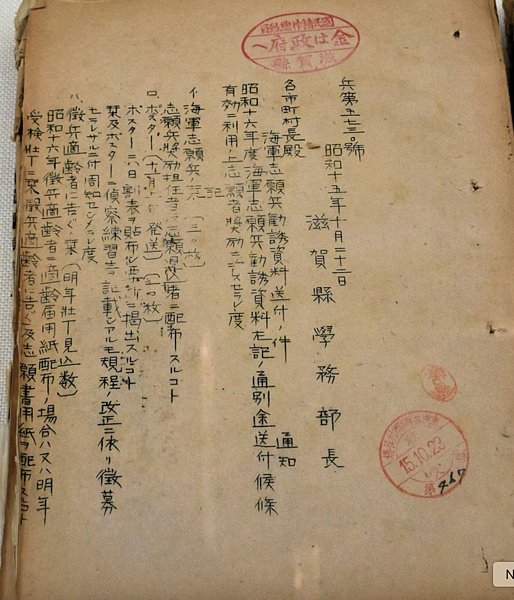 國民精神總動員
金は政府へ
滋賀縣
兵第五七三〇號
昭和十五年十月二十二日
滋賀縣學務部長
各市町村長殿
海軍志願兵勧誘資料送付ノ件 通知
昭和十六年度海軍志願兵勧誘資料左記ノ通別途送付候條
有効ニ利用ノ上志願者奨励
記
イ、海軍志願兵ノ栞
志願兵奨励担任者及志願見込者ニ配布スルコト
ロ、ポスター
ポスターニハ日割表ヲ貼布シ要所ニ掲出スルコト
栞及ポスターニ偵察練習生ヲ記載シアルモ規程ノ改正ニ依リ徴募
セラレザルニ付周知セシメラレ度
ハ、徴兵適齢者ニ告ぐノ栞(明年壮丁見込数)
昭和十六年徴兵適齢者ニ適齢届用紙配布ノ場合ハ又ハ明年
受検壮丁ニ栞徴兵適齢者に告ぐ及志願書用紙ヲ配布スルコト
15.10.23
第